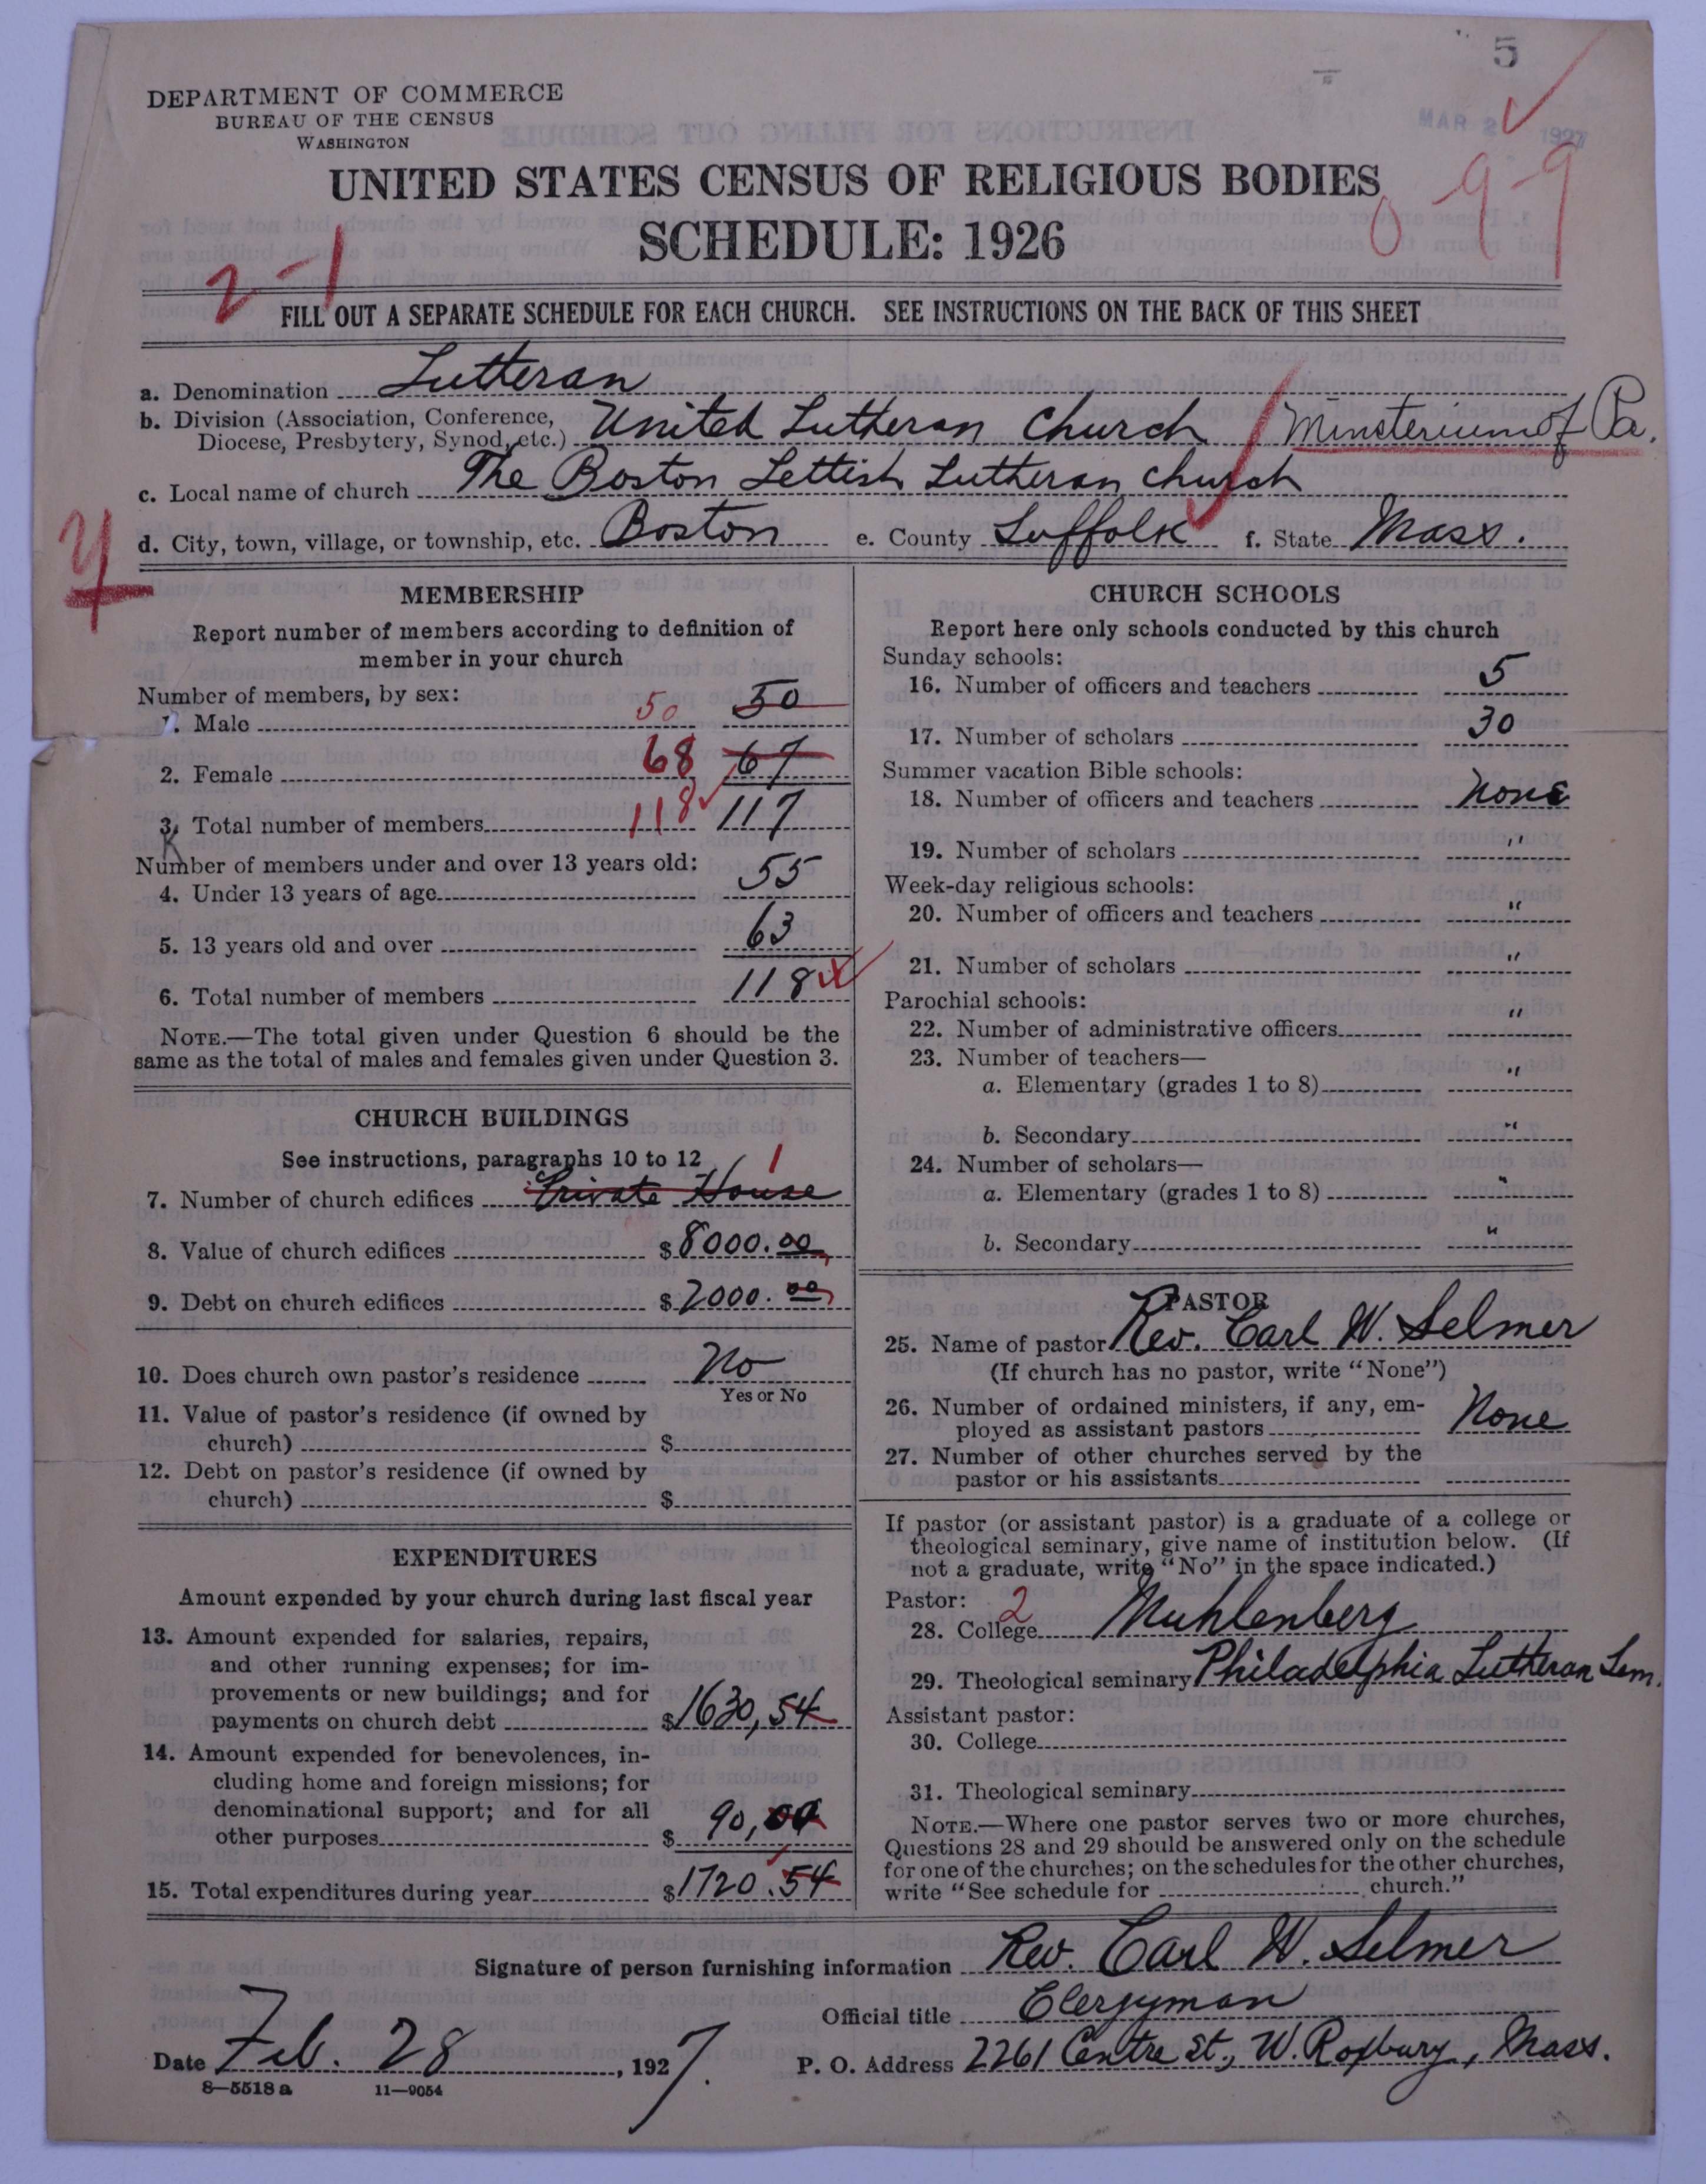 5
DEPARTMENT OF COMMERCE
BUREAU OF THE CENSUS
WASHINGTON
MAR 2 1927
UNITED STATES CENSUS OF RELIGIOUS BODIES
0-9-9
SCHEDULE: 1926
2-1
FILL OUT A SEPARATE SCHEDULE FOR EACH CHURCH. SEE INSTRUCTIONS ON THE BACK OF THIS SHEET
a. Denomination Lutheran
b. Division (Association, Conference,
Diocese, Presbytery, Synod, etc.) United Lutheran Church / Minsterium of Pa.
c. Local name of church The Boston Lettish Lutheran Church
d. City, town, village, or township, etc. Boston e. County Suffolk f. State Mass.
MEMBERSHIP
Report number of members according to definition of
member in your church
Number of members, by sex:
1. Male 50 50
2. Female 68 67
3. Total number of members 118 117
Number of members under and over 13 years old:
4. Under 13 years of age 55
5. 13 years old and over 63
6. Total number of members 118
NOTE.—The total given under Question 6 should be the
same as the total of males and females given under Question 3.
CHURCH BUILDINGS
See instructions, paragraphs 10 to 12
1
7. Number of church edifices Private House
8. Value of church edifices $8000.00
9. Debt on church edifices $2000.00
10. Does church own pastor's residence No
Yes or No
11. Value of pastor's residence (if owned by
church) $
12. Debt on pastor's residence (if owned by
church) $
EXPENDITURES
Amount expended by your church during last fiscal year
13. Amount expended for salaries, repairs,
and other running expenses; for im-
provements or new buildings; and for
payments on church debt $1630,54
14. Amount expended for benevolences, in-
cluding home and foreign missions; for
denominational support; and for all
other purposes $90,00
15. Total expenditures during year $1720.54
CHURCH SCHOOLS
Report here only schools conducted by this church
Sunday schools:
16. Number of officers and teachers 5
17. Number of scholars 30
Summer vacation Bible schools:
18. Number of officers and teachers None
19. Number of scholars "
Week-day religious schools:
20. Number of officers and teachers "
21. Number of scholars "
Parochial schools:
22. Number of administrative officers "
23. Number of teachers—
a. Elementary (grades 1 to 8) "
b. Secondary "
24. Number of scholars—
a. Elementary (grades 1 to 8) "
b. Secondary "
PASTOR
25. Name of pastor Rev. Carl W. Selmer
(If church has no pastor, write "None")
26. Number of ordained ministers, if any, em-
ployed as assistant pastors None
27. Number of other churches served by the
pastor or his assistants
If pastor (or assistant pastor) is a graduate of a college or
theological seminary, give name of institution below. (If
not a graduate, write "No" in the space indicated.)
Pastor: 2
28. College Muhlenberg
29. Theological seminary Philadelphia Lutheran Sem.
Assistant pastor:
30. College
31. Theological seminary
NOTE.—Where one pastor serves two or more churches,
Questions 28 and 29 should be answered only on the schedule
for one of the churches; on the schedules for the other churches,
write "See schedule for church."
Signature of person furnishing information Rev. Carl W. Selmer
Official title Clergyman
Date Feb. 28, 1927. P. O. Address 2261 Centre St., W. Roxbury, Mass.
8—5518 a 11—9054